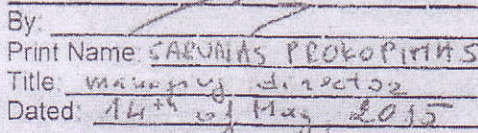 By:
Print Name: SARUNAS PROKOPIMAS
Title: managing director
Dated: 14th of May 2015